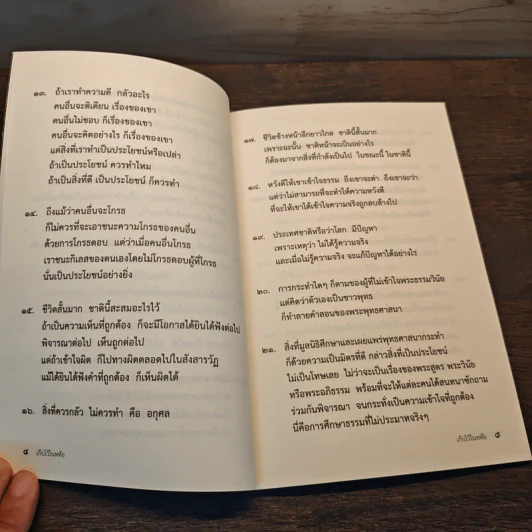 ๑๓. ถ้าเราทำความดี กลัวอะไร
คนอื่นจะติเตียน เรื่องของเขา
คนอื่นไม่ชอบ ก็เรื่องของเขา
คนอื่นจะคิดอย่างไร ก็เรื่องของเขา
แต่สิ่งที่เราทำเป็นประโยชน์หรือเปล่า
ถ้าเป็นประโยชน์ ควรทำไหม
ถ้าเป็นสิ่งที่ดี เป็นประโยชน์ ก็ควรทำ
๑๔. ถึงแม้ว่าคนอื่นจะโกรธ
ก็ไม่ควรที่จะเอาชนะความโกรธของคนอื่น
ด้วยการโกรธตอบ แต่ว่าเมื่อคนอื่นโกรธ
เราชนะกิเลสของตนเองโดยไม่โกรธตอบผู้ที่โกรธ
นั่นเป็นประโยชน์อย่างยิ่ง
๑๕. ชีวิตสั้นมาก ชาตินี้สะสมอะไรไว้
ถ้าเป็นความเห็นที่ถูกต้อง ก็จะมีโอกาสได้ยินได้ฟังต่อไป
พิจารณาต่อไป เห็นถูกต่อไป
แต่ถ้าเข้าใจผิด ก็ไปทางผิดตลอดไปในสังสารวัฏ
แม้ได้ยินได้ฟังคำที่ถูกต้อง ก็เห็นผิดได้
๑๖. สิ่งที่ควรกลัว ไม่ควรทำ คือ อกุศล
๘ เก็บไว้ในหทัย
๑๗. ชีวิตข้างหน้าอีกยาวไกล ชาตินี้สั้นมาก
เพราะฉะนั้น ชาติหน้าจะเป็นอย่างไร
ก็ต้องมาจากสิ่งที่กำลังเป็นไป ในขณะนี้ ในชาตินี้
๑๘. หวังดีให้เขาเข้าใจธรรม ถึงเขาจะด่า ถึงเขาจะว่า
แต่ว่าไม่สามารถที่จะทำให้ความหวังดี
ที่จะให้เขาได้เข้าใจความจริงถูกลบล้างไป
๑๙. ประเทศชาติหรือว่าโลก มีปัญหา
เพราะเหตุว่า ไม่ได้รู้ความจริง
และเมื่อไม่รู้ความจริง จะแก้ปัญหาได้อย่างไร
๒๐. การกระทำใดๆ ก็ตามของผู้ที่ไม่เข้าใจพระธรรมวินัย
แต่คิดว่าตัวเองเป็นชาวพุทธ
ก็ทำลายคำสอนของพระพุทธศาสนา
๒๑. สิ่งที่มูลนิธิศึกษาและเผยแพร่พุทธศาสนากระทำ
ก็ด้วยความเป็นมิตรที่ดี กล่าวสิ่งที่เป็นประโยชน์
ไม่เป็นโทษเลย ไม่ว่าจะเป็นเรื่องของพระสูตร พระวินัย
หรือพระอภิธรรม พร้อมที่จะให้แต่ละคนได้สนทนาซักถาม
ร่วมกันพิจารณา จนกระทั่งเป็นความเข้าใจที่ถูกต้อง
นี้คือการศึกษาธรรมที่ไม่ประมาทจริงๆ
เก็บไว้ในหทัย ๙